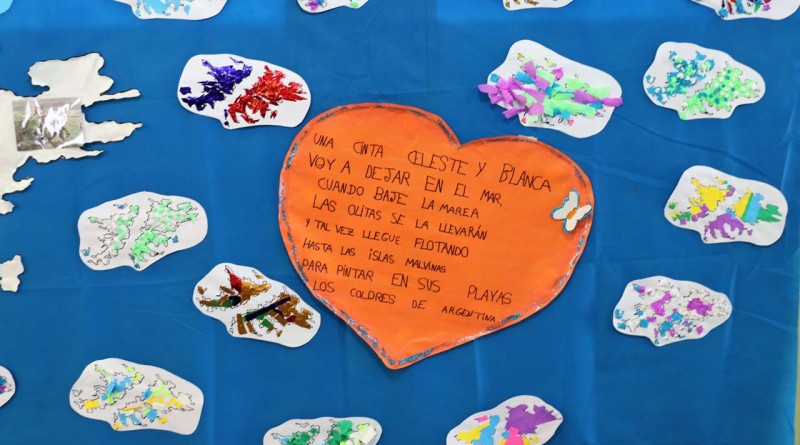 UNA CINTA CELESTE Y BLANCA
VOY A DEJAR EN EL MAR,
CUANDO BAJE LA MAREA
LAS OLITAS SE LA LLEVARÁN
Y TAL VEZ LLEGUE FLOTANDO
HASTA LAS ISLAS MALVINAS
PARA PINTAR EN SUS PLAYAS
LOS COLORES DE ARGENTINA